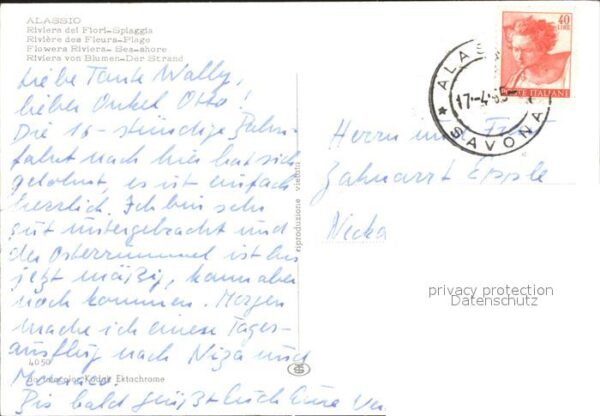 ALASSIO
Riviera dei Fiori-Spiaggia
Rivière des Fleurs-Plage
Flowers Riviera- Sea-shore
Riviera von Blumen-Der Strand
Liebe Tante Wally,
lieber Onkel Otto!
Die 16-stündige Bahn-
fahrt nach hier hat sich
gelohnt, es ist einfach
herrlich. Ich bin sehr
gut untergebracht und
der Osterrummel ist bis
jetzt mäßig, kann aber
noch kommen. Morgen
mache ich einen Tages-
ausflug nach Nizza und
Monaco.
Bis bald grüßt Euch Eure
4050
Kodak Ektachrome
riproduzione vietata
40
LIRE
ITALIANE
ALAS
17-4-65
* SAVONA
Herrn und Frau
Zahnarzt Epple
Necka
privacy protection
Datenschutz